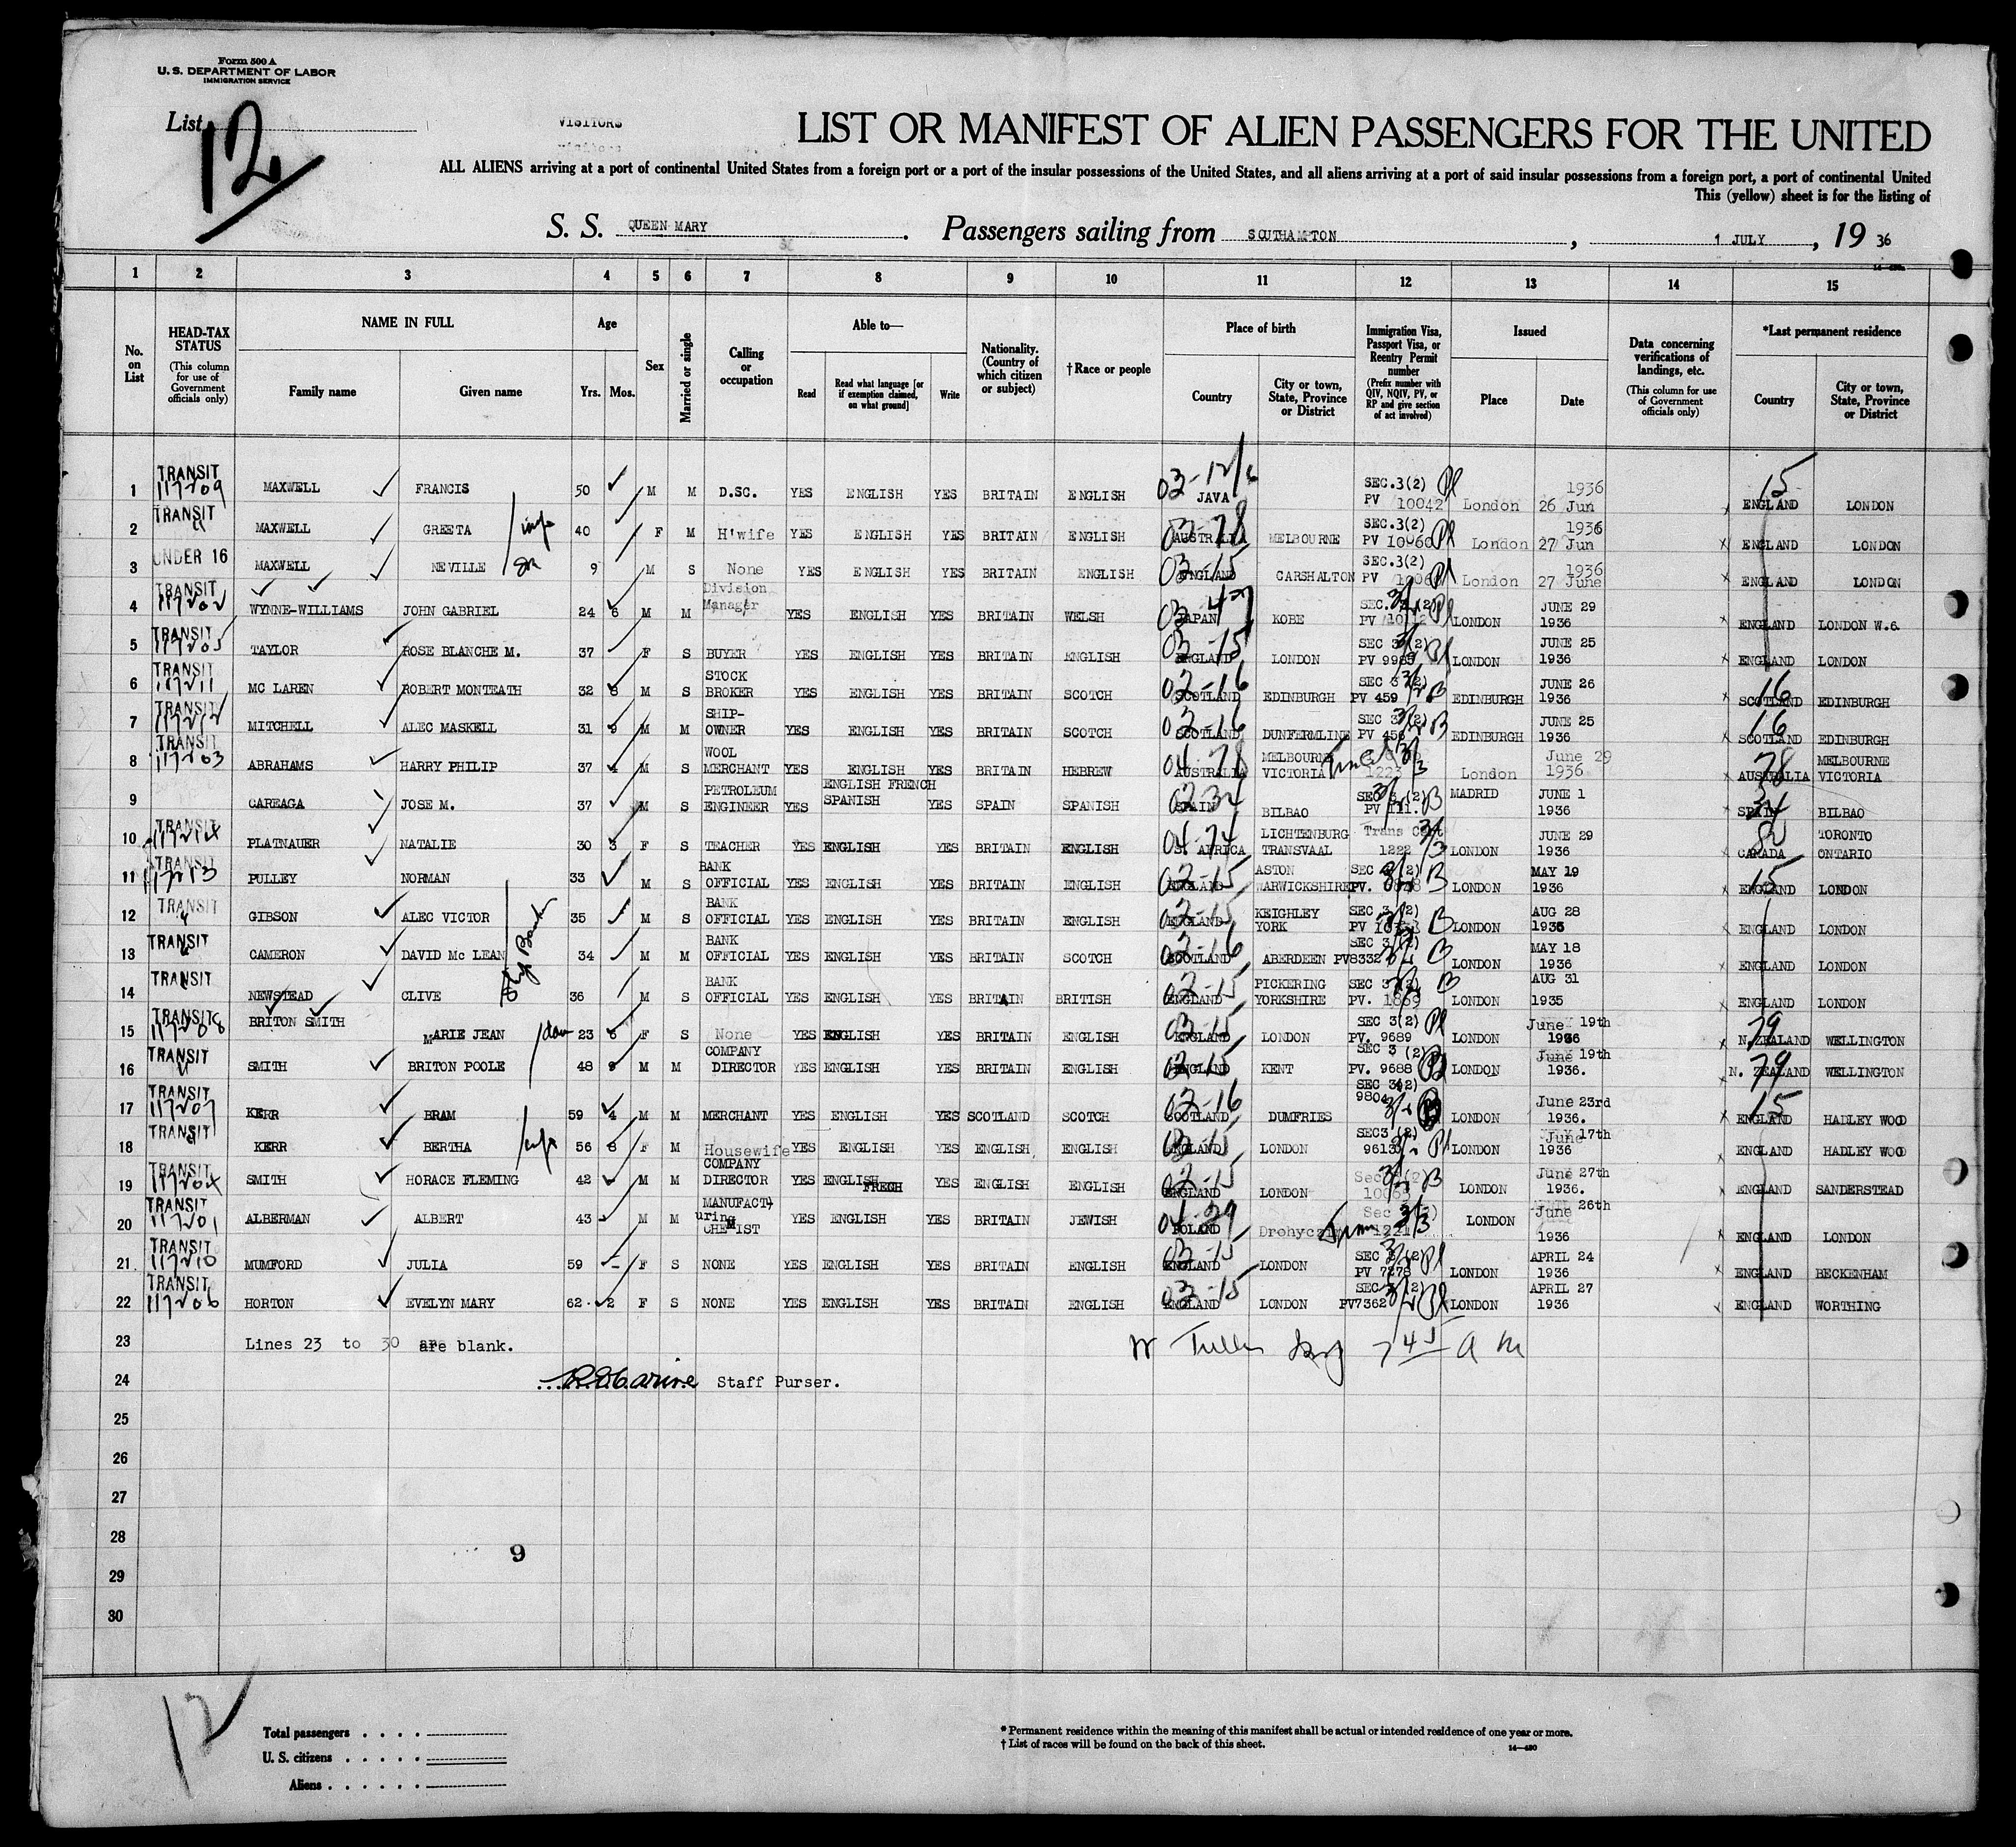 Form 500 A
U. S. DEPARTMENT OF LABOR
IMMIGRATION SERVICE
List 12
VISITORS
LIST OR MANIFEST OF ALIEN PASSENGERS FOR THE UNITED
ALL ALIENS arriving at a port of continental United States from a foreign port or a port of the insular possessions of the United States, and all aliens arriving at a port of said insular possessions from a foreign port, a port of continental United
This (yellow) sheet is for the listing of
S. S. QUEEN MARY. Passengers sailing from SOUTHAMPTON, 1 JULY, 19 36
1 2 3 4 5 6 7 8 9 10 11 12 13 14 15
No. on List
HEAD-TAX STATUS (This column for use of Government officials only)
NAME IN FULL
Family name Given name
Age Yrs. Mos.
Sex
Married or single
Calling or occupation
Able to—
Read Read what language [or if exemption claimed, on what ground] Write
Nationality. (Country of which citizen or subject)
†Race or people
Place of birth
Country City or town, State, Province or District
Immigration Visa, Passport Visa, or Reentry Permit number (Prefix number with QIV, NQIV, PV, or RP and give section of act involved)
Issued
Place Date
Data concerning verifications of landings, etc. (This column for use of Government officials only)
*Last permanent residence
Country City or town, State, Province or District
1 TRANSIT 117209 MAXWELL FRANCIS 50 M M D.SC. YES ENGLISH YES BRITAIN ENGLISH JAVA SEC.3(2) PV 10042 London 26 Jun 1936 15 ENGLAND LONDON
2 TRANSIT MAXWELL GREETA wife 40 F M H'wife YES ENGLISH YES BRITAIN ENGLISH 03-78 AUSTRALIA MELBOURNE SEC.3(2) PV 10060 London 27 Jun 1936 ENGLAND LONDON
3 UNDER 16 MAXWELL NEVILLE son 9 M S None YES ENGLISH YES BRITAIN ENGLISH 03-15 ENGLAND CARSHALTON SEC.3(2) PV London 27 June 1936 ENGLAND LONDON
4 TRANSIT 117202 WYNNE-WILLIAMS JOHN GABRIEL 24 6 M M Division Manager YES ENGLISH YES BRITAIN WELSH JAPAN KOBE SEC. 3(2) PV LONDON JUNE 29 1936 ENGLAND LONDON W.6.
5 TRANSIT 117205 TAYLOR ROSE BLANCHE M. 37 F S BUYER YES ENGLISH YES BRITAIN ENGLISH 03-15 ENGLAND LONDON SEC 3(2) PV LONDON JUNE 25 1936 ENGLAND LONDON
6 TRANSIT 117211 MC LAREN ROBERT MONTEATH 32 8 M S STOCK BROKER YES ENGLISH YES BRITAIN SCOTCH 02-16 SCOTLAND EDINBURGH SEC 3(2) PV 459 EDINBURGH JUNE 26 1936 16 SCOTLAND EDINBURGH
7 TRANSIT 117212 MITCHELL ALEC MASKELL 31 9 M M SHIP-OWNER YES ENGLISH YES BRITAIN SCOTCH 02-16 SCOTLAND DUNFERMLINE SEC 3(2) PV 456 EDINBURGH JUNE 25 1936 16 SCOTLAND EDINBURGH
8 TRANSIT 117203 ABRAHAMS HARRY PHILIP 37 4 M S WOOL MERCHANT YES ENGLISH YES BRITAIN HEBREW 04 78 AUSTRALIA MELBOURNE VICTORIA 1223 London June 29 1936 78 AUSTRALIA MELBOURNE VICTORIA
9 CAREAGA JOSE M. 37 M S PETROLEUM ENGINEER YES ENGLISH FRENCH SPANISH YES SPAIN SPANISH 02 34 SPAIN BILBAO SEC 3(2) PV 111. MADRID JUNE 1 1936 34 SPAIN BILBAO
10 TRANSIT 117214 PLATNAUER NATALIE 30 3 F S TEACHER YES ENGLISH YES BRITAIN ENGLISH 04-74 S. AFRICA LICHTENBURG TRANSVAAL Trans Cert 1222 LONDON JUNE 29 1936 CANADA TORONTO ONTARIO
11 TRANSIT 117213 PULLEY NORMAN 33 M S BANK OFFICIAL YES ENGLISH YES BRITAIN ENGLISH 02-15 ENGLAND ASTON WARWICKSHIRE SEC 3(2) PV. LONDON MAY 19 1936 15 ENGLAND LONDON
12 TRANSIT GIBSON ALEC VICTOR 35 M S BANK OFFICIAL YES ENGLISH YES BRITAIN ENGLISH 02-15 ENGLAND KEIGHLEY YORK SEC 3(2) PV LONDON AUG 28 ENGLAND LONDON
13 TRANSIT CAMERON DAVID Mc LEAN 34 M M BANK OFFICIAL YES ENGLISH YES BRITAIN SCOTCH 02-16 SCOTLAND ABERDEEN SEC 3(2) PV8332 LONDON MAY 18 1936 ENGLAND LONDON
14 TRANSIT NEWSTEAD CLIVE 36 M S BANK OFFICIAL YES ENGLISH YES BRITAIN BRITISH 02-15 ENGLAND PICKERING YORKSHIRE SEC 3(2) PV. 1869 LONDON AUG 31 1935 ENGLAND LONDON
15 TRANSIT 117208 BRITON SMITH MARIE JEAN dau 23 6 F S None YES ENGLISH YES BRITAIN ENGLISH 03-15 ENGLAND LONDON SEC 3(2) PV. 9689 LONDON June 19th 1936 79 N. ZEALAND WELLINGTON
16 TRANSIT SMITH BRITON POOLE 48 9 M M COMPANY DIRECTOR YES ENGLISH YES BRITAIN ENGLISH 02-15 ENGLAND KENT SEC 3 (2) PV. 9688 LONDON June 19th 1936. 79 N. ZEALAND WELLINGTON
17 TRANSIT 117207 KERR BRAM 59 4 M M MERCHANT YES ENGLISH YES SCOTLAND SCOTCH 02-16 SCOTLAND DUMFRIES SEC 3(2) 9804 LONDON June 23rd 1936. 15 ENGLAND HADLEY WOOD
18 TRANSIT KERR BERTHA wife 56 8 F M Housewife YES ENGLISH YES ENGLISH ENGLISH 03-15 ENGLAND LONDON SEC3 (2) 9613 LONDON June 17th 1936 ENGLAND HADLEY WOOD
19 TRANSIT 117204 SMITH HORACE FLEMING 42 M M COMPANY DIRECTOR YES ENGLISH FRECH YES ENGLISH ENGLISH 02-15 ENGLAND LONDON Sec 3(2) 10063 LONDON June 27th 1936. ENGLAND SANDERSTEAD
20 TRANSIT 117201 ALBERMAN ALBERT 43 M M MANUFACTuring CHEMIST YES ENGLISH YES BRITAIN JEWISH 04-29 POLAND Sec 3(2) 1221 LONDON June 26th 1936 ENGLAND LONDON
21 TRANSIT 117210 MUMFORD JULIA 59 - F S NONE YES ENGLISH YES BRITAIN ENGLISH 03-15 ENGLAND LONDON SEC 3(2) PV 7278 LONDON APRIL 24 1936 ENGLAND BECKENHAM
22 TRANSIT 117206 HORTON EVELYN MARY 62 2 F S NONE YES ENGLISH YES BRITAIN ENGLISH 03-15 ENGLAND LONDON SEC 3(2) PV7362 LONDON APRIL 27 1936 ENGLAND WORTHING
23 Lines 23 to 30 are blank.
24 Staff Purser.
25
26
27
28
9
29
30
12
Total passengers
U. S. citizens
Aliens
* Permanent residence within the meaning of this manifest shall be actual or intended residence of one year or more.
† List of races will be found on the back of this sheet.
14—430